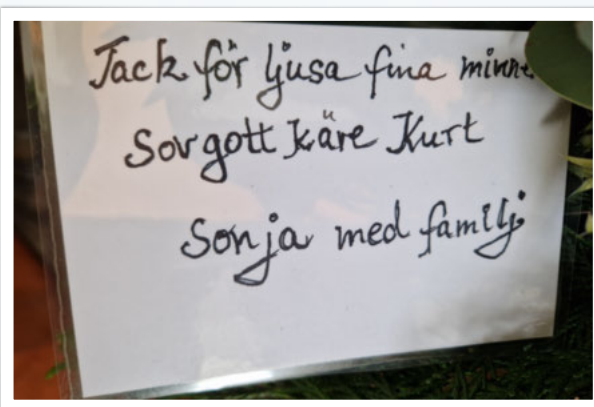 Tack för ljusa fina minne
Sov gott Käre Kurt
Sonja med familj